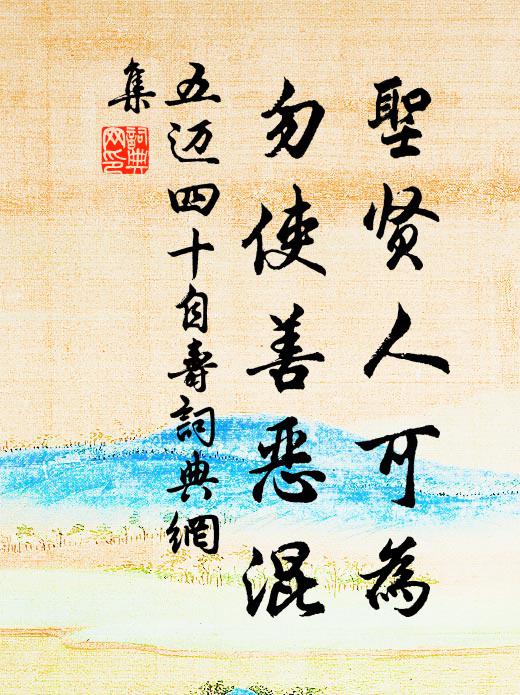 聖贤人可為
勿使善惡混
五迈四十自壽詞典網
集
詞典
网印